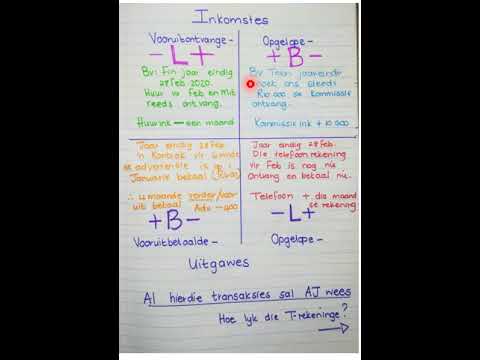 Inkomstes
Vooruitontvange -
- L +
Bv: Fin jaar eindig
28 Feb 2020.
Huur vir Feb en Mrt
reeds ontvang.
Huur ink — een maand
Opgelope -
+ B -
Bv Teen jaareinde
moet ons steeds
R10 000 se kommissie
ontvang.
Kommissie ink + 10 000
Jaar eindig 28 Feb
'n Kontrak vir 6 mnde
se advertensie is op 1
Januarie betaal
∴ 4 maande verder/voor
uit betaal Adv - 400
+ B -
Vooruitbetaalde -
Jaar eindig 28 Feb.
Die telefoon rekening
vir Feb is nog nie
ontvang en betaal nie.
Telefoon + die maand
se rekening
- L +
Opgelope -
Uitgawes
Al hierdie transaksies sal AJ wees
Hoe lyk die T-rekeninge?